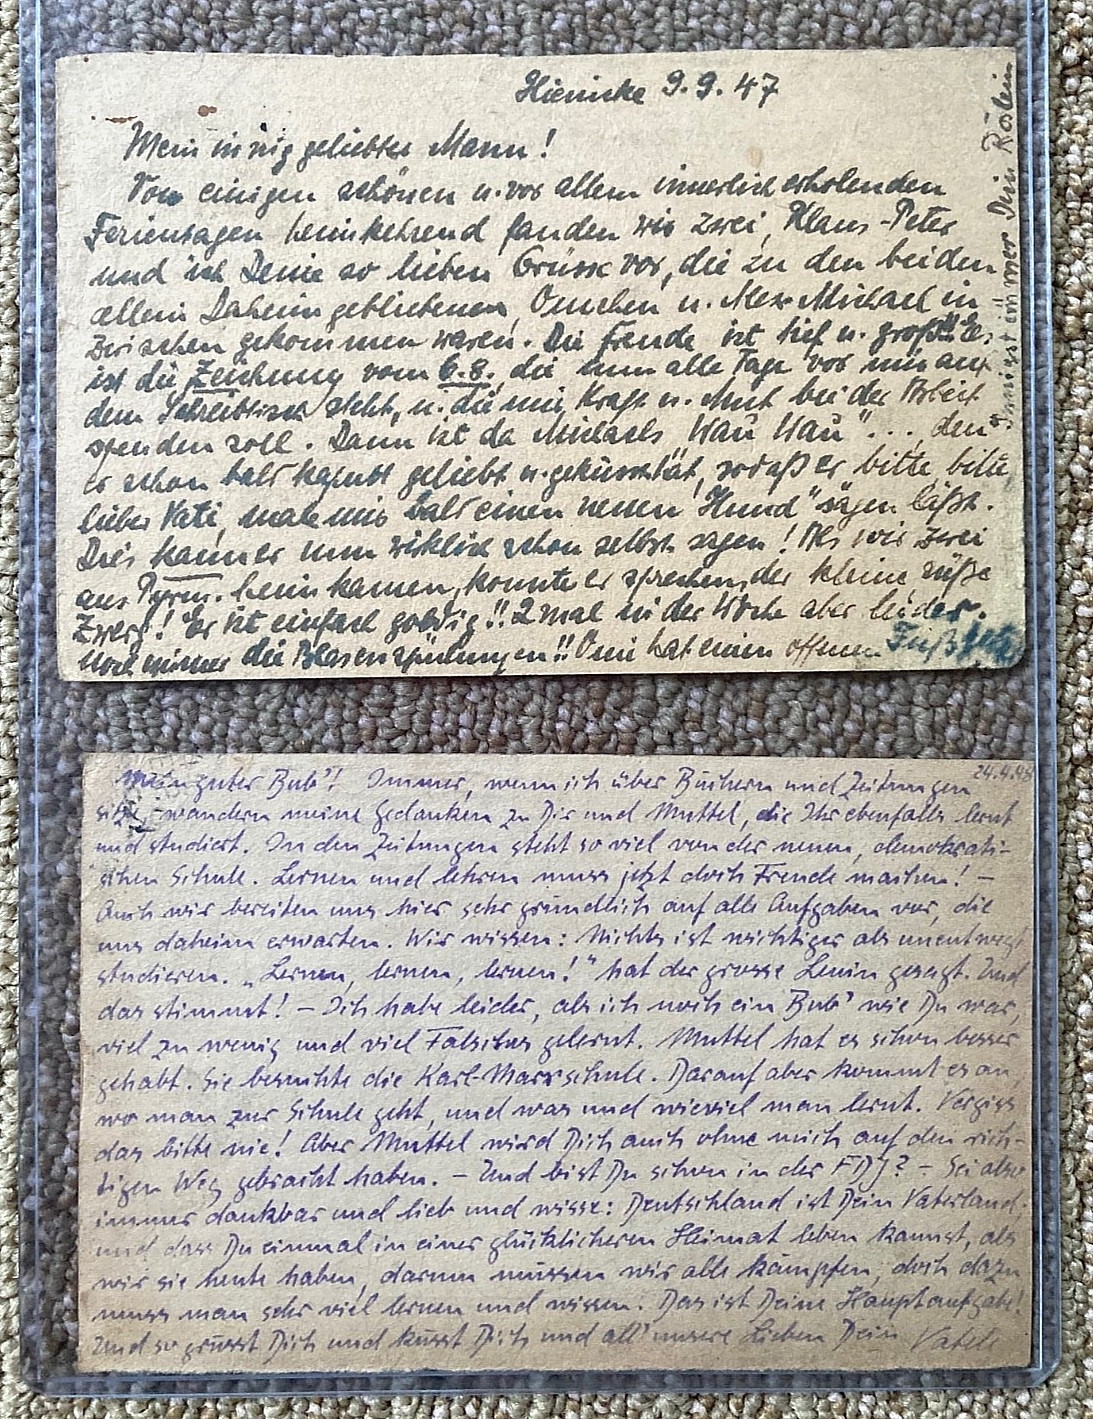 9.9.47
Mein innig geliebter Mann!
Von einigen schönen u. vor allem innerlich erholenden
Ferientagen heimkehrend fanden wir zwei, Klaus-Peter
und ich Deine so lieben Grüsse vor, die zu den beiden
allein Daheimgebliebenen, Omchen u. Michael in
zwischen gekommen waren. Die Freude ist tief u. groß!! Da
ist die Zeichnung vom 6.8., die nun alle Tage vor mir auf
dem Schreibtisch steht, u. die mir Kraft u. Mut bei der Arbeit
spenden soll. Dann ist da Michaels „Wau Wau"... den
er schon bald kaputt geliebt u. geküsst hat, sodaß er bitte bitte,
lieber Vati, male mir bald einen neuen „Hund" sagen läßt.
Dies kann er nun wirklich schon selbst sagen! Als wir zwei
aus Pyrm. heimkamen, konnte er sprechen, der kleine süße
Zwerg! Er ist einfach goldig!! 2 mal in der Woche aber leider
noch immer die Blasenspülungen!! Omi hat einen offenen Fuß
Innigst immer Dein Röslein
24.4.48
Mein guter Bub'! Immer, wenn ich über Büchern und Zeitungen
sitze, wandern meine Gedanken zu Dir und Muttel, die Ihr ebenfalls lernt
und studiert. In den Zeitungen steht so viel von der neuen, demokrati-
schen Schule. Lernen und lehren muss jetzt doch Freude machen! –
Auch wir bereiten uns hier sehr gründlich auf alle Aufgaben vor, die
uns daheim erwarten. Wir wissen: Nichts ist wichtiger als unentwegt
studieren. „Lernen, lernen, lernen!" hat der grosse Lenin gesagt. Und
das stimmt! – Ich habe leider, als ich noch ein Bub' wie Du war,
viel zu wenig und viel Falsches gelernt. Muttel hat es schon besser
gehabt. Sie besuchte die Karl-Marxschule. Darauf aber kommt es an,
wo man zur Schule geht, und was und wieviel man lernt. Vergiss
das bitte nie! Aber Muttel wird Dich auch ohne mich auf den rich-
tigen Weg gebracht haben. – Und bist Du schon in der FDJ? – Sei also
immer dankbar und lieb und wisse: Deutschland ist Dein Vaterland;
und dass Du einmal in einer glücklicheren Heimat leben kannst, als
wir sie heute haben, darum müssen wir alle kämpfen, doch dazu
muss man sehr viel lernen und wissen. Das ist Deine Hauptaufgabe!
Und so grüsst Dich und küsst Dich und all' unsere Lieben Dein Vatele